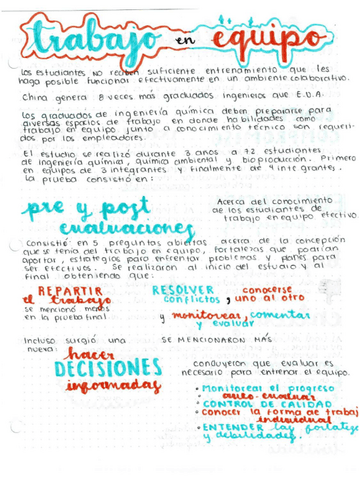 trabajo en equipo
Los estudiantes no reciben suficiente entrenamiento que les
haga posible funcionar efectivamente en un ambiente colaborativo.
China genera 8 veces más graduados ingenieros que E.U.A.
Los graduados de ingeniería química deben prepararse para
diversas espacios de trabajo en donde habilidades como
trabajo en equipo junto a conocimiento técnico son requeri-
dos por los empleadores.
El estudio se realizó durante 3 años a 72 estudiantes
de ingeniería química, química ambiental y bioproducción. Primero
en equipos de 3 integrantes y finalmente de 4 integrantes.
La prueba consistió en:
pre y post
evaluaciones
Acerca del conocimiento
de los estudiantes de
trabajo en equipo efectivo
Consistió en 5 preguntas abiertas acerca de la concepción
que se tenía del trabajo en equipo, fortalezas que podrían
aportar, estrategias para enfrentar problemas y planes para
ser efectivos. Se realizaron al inicio del estudio y al
final obteniendo que:
REPARTIR
el trabajo
se mencionó menos
en la prueba final
RESOLVER
conflictos, conocerse
uno al otro
y monitorear, comentar
y evaluar
SE MENCIONARON MÁS
Incluso surgió una
nueva:
hacer
DECISIONES
informadas
Concluyeron que evaluar es
necesario para entrenar el equipo.
• Monitorear el progreso
• auto-evaluar
• CONTROL DE CALIDAD
• Conocer la forma de trabajo
individual
• ENTENDER las fortalezas
y debilidades.